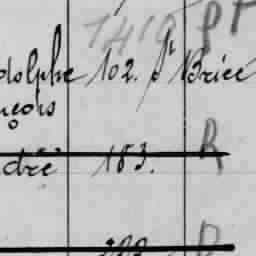 1410 PT
dolphe 102. St Brice
nçois
dré 183. R